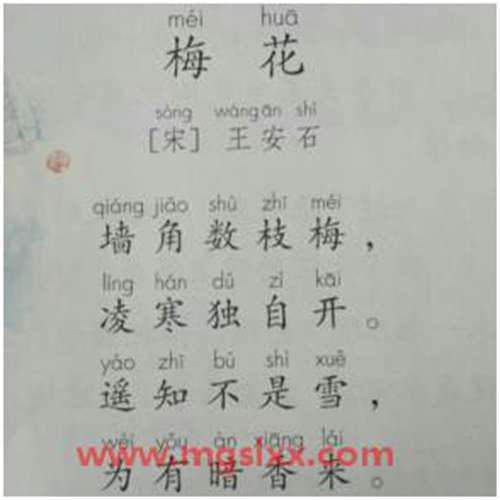 méi huā
梅 花
sòng wáng ān shí
[宋] 王安石
qiáng jiǎo shù zhī méi
墙角数枝梅，
líng hán dú zì kāi
凌寒独自开。
yáo zhī bú shì xuě
遥知不是雪，
wèi yǒu àn xiāng lái
www.mgslxx.com
为有暗香来。